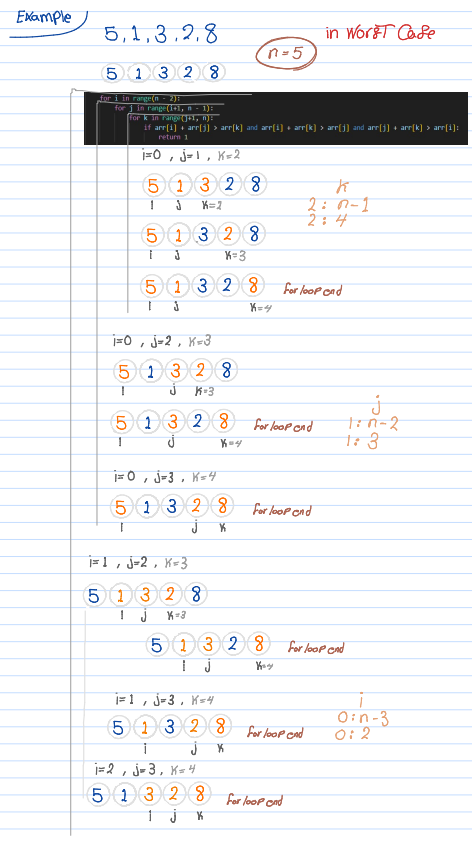 Example
5, 1, 3, 2, 8
in Worst Case
n=5
5 1 3 2 8
for i in range(n - 2):
for j in range(i+1, n - 1):
for k in range(j+1, n):
if arr[i] + arr[j] > arr[k] and arr[i] + arr[k] > arr[j] and arr[j] + arr[k] > arr[i]:
return 1
i=0 , j=1 , K=2
5 1 3 2 8
i j K=2
K
2 : n-1
2 : 4
5 1 3 2 8
i j K=3
5 1 3 2 8 for loop end
i j K=4
i=0 , j=2 , K=3
5 1 3 2 8
i j K=3
5 1 3 2 8 for loop end
i j K=4
j
1 : n-2
1 : 3
i=0 , j=3 , K=4
5 1 3 2 8 for loop end
i j K
i=1 , j=2 , K=3
5 1 3 2 8
i j K=3
5 1 3 2 8 for loop end
i j K=4
i=1 , j=3 , K=4
5 1 3 2 8 for loop end
i j K
i
0 : n-3
0 : 2
i=2 , j=3 , K=4
5 1 3 2 8 for loop end
i j K